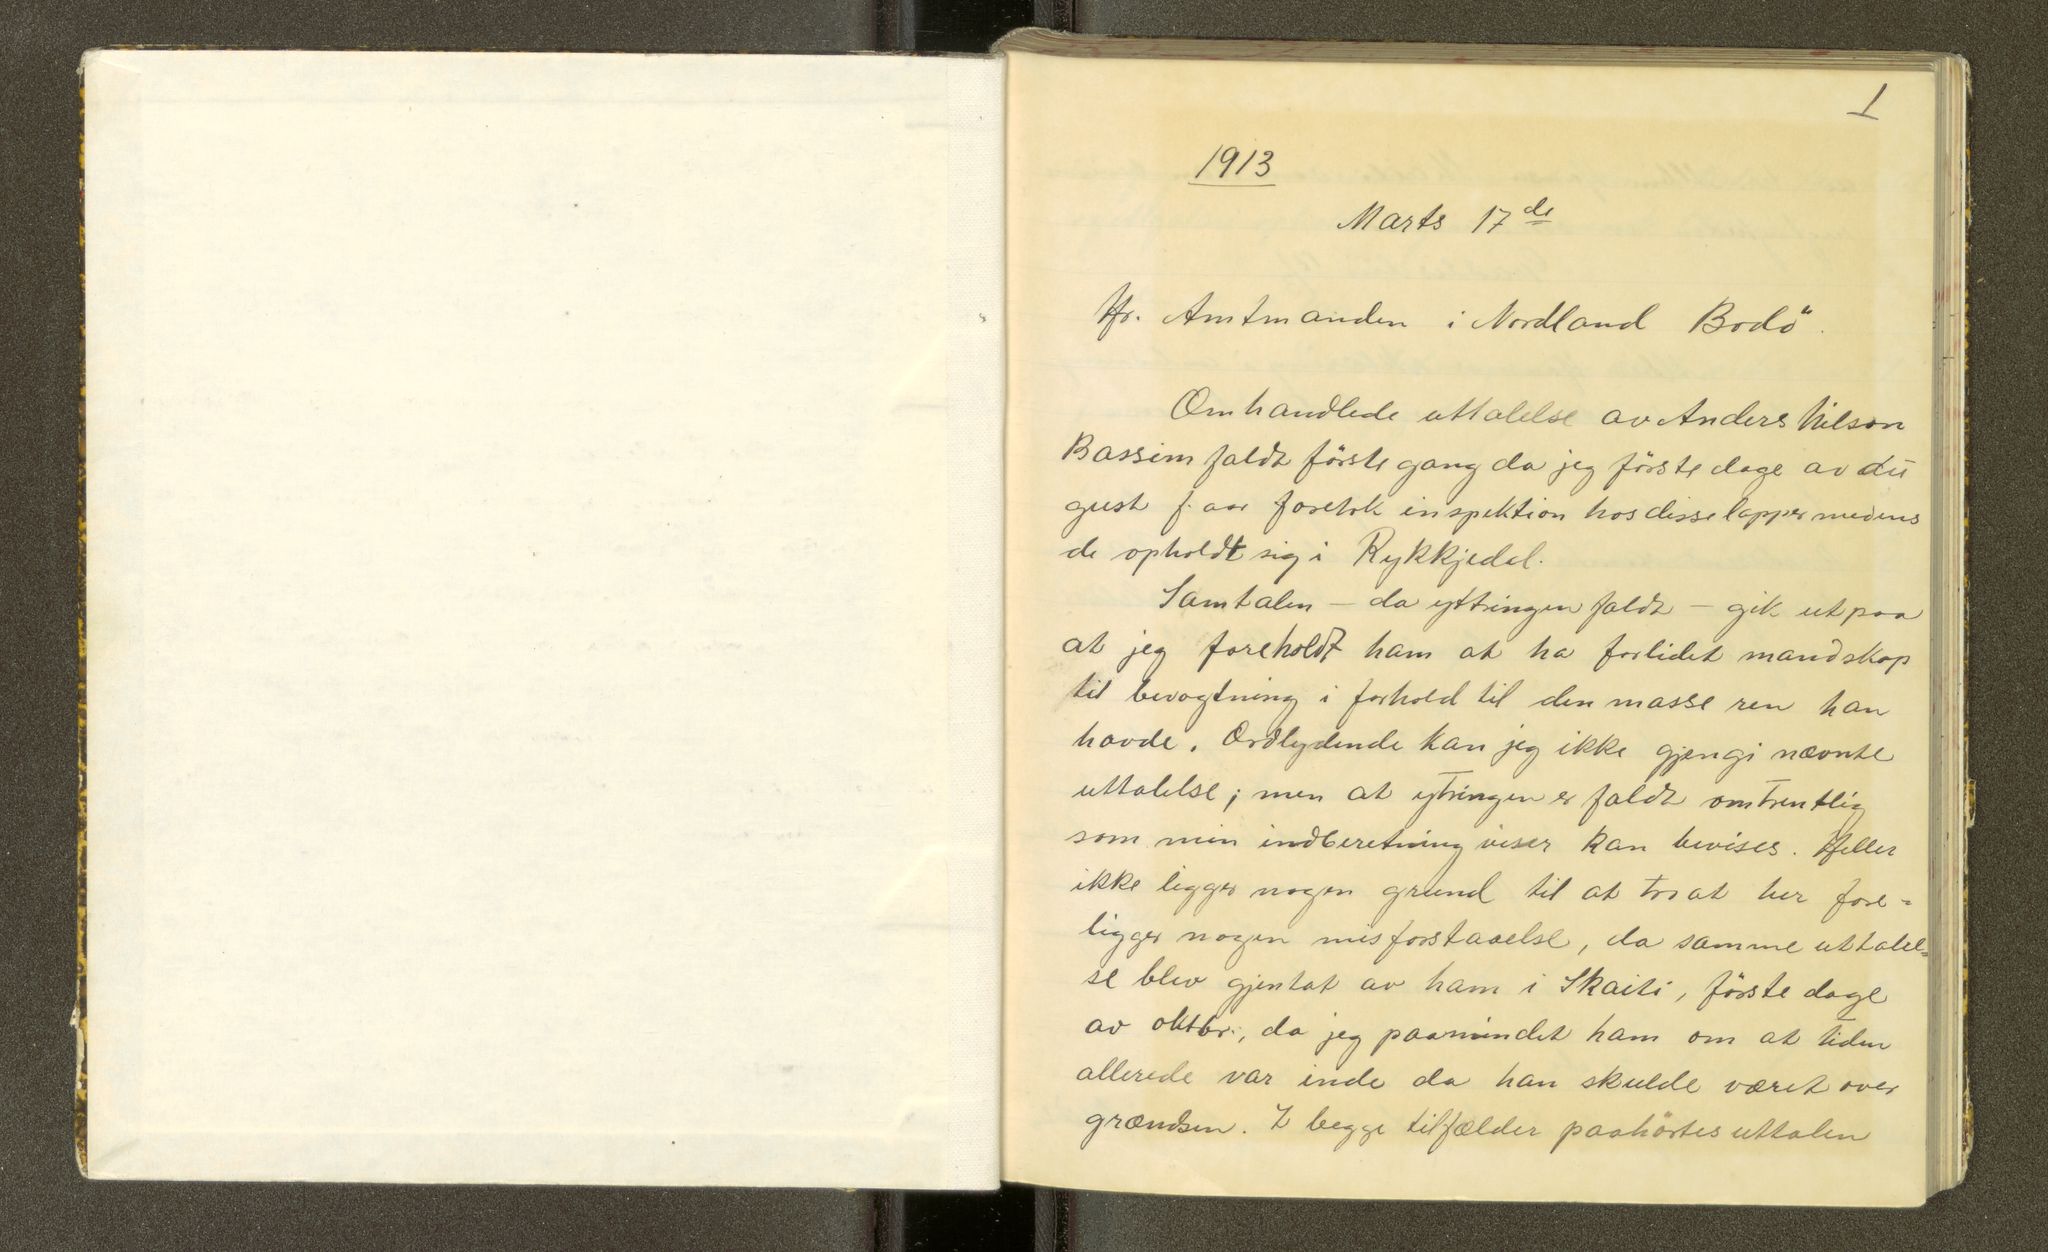 1
1913
Marts 17de
Hr. Amtmanden i Nordland Bodö.
Omhandlede uttalelse av Anders Nilson
Bassim faldt förste gang da jeg förste dage av au
gust f. aar foretok inspektion hos disse lapper medens
de opholdt sig i Rykkjedal.
Samtalen – da yttringen faldt – gik ut paa
at jeg foreholdt ham at ha forlidet mandskap
til bevogtning i forhold til den masse ren han
havde. Ordlydende kan jeg ikke gjengi nævnte
uttalelse; men at ytringen er faldt omtrentlig
som min indberetning viser kan bevises. Heller
ikke ligger nogen grund til at tro at her fore=
ligger nogen misforstaaelse, da samme uttalel=
se blev gjentat av ham i Skaiti, förste dage
av oktbr., da jeg paamindet ham om at tiden
allerede var inde da han skulde været over
grændsen. I begge tilfælder paahörtes uttalen